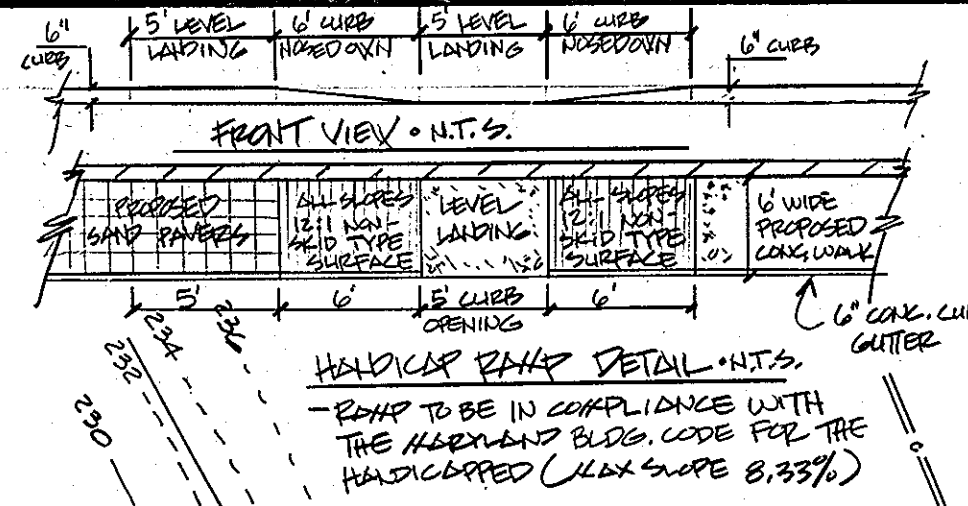 6"
CURB
5' LEVEL
LANDING
6' CURB
NOSEDOWN
5' LEVEL
LANDING
6' CURB
NOSEDOWN
6" CURB
FRONT VIEW • N.T.S.
PROPOSED
SAND PAVERS
ALL SLOPES
12:1 NON-
SKID TYPE
SURFACE
LEVEL
LANDING
ALL SLOPES
12:1 NON-
SKID TYPE
SURFACE
6' WIDE
PROPOSED
CONC. WALK
5'
6'
5' CURB
OPENING
6'
6" CONC. CUR
GUTTER
236
234
232
230
HANDICAP RAMP DETAIL • N.T.S.
- RAMP TO BE IN COMPLIANCE WITH
THE MARYLAND BLDG. CODE FOR THE
HANDICAPPED (MAX SLOPE 8.33%)
C